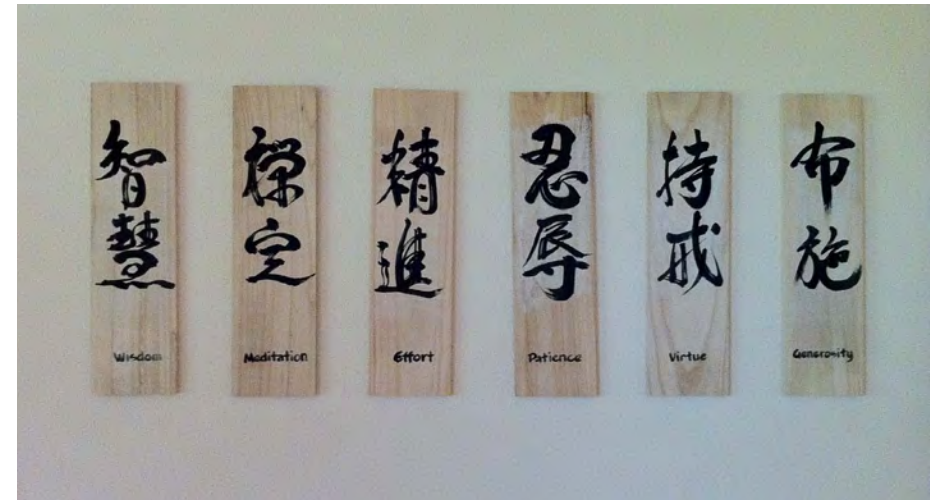 智慧
Wisdom
禪定
Meditation
精進
Effort
忍辱
Patience
持戒
Virtue
布施
Generosity